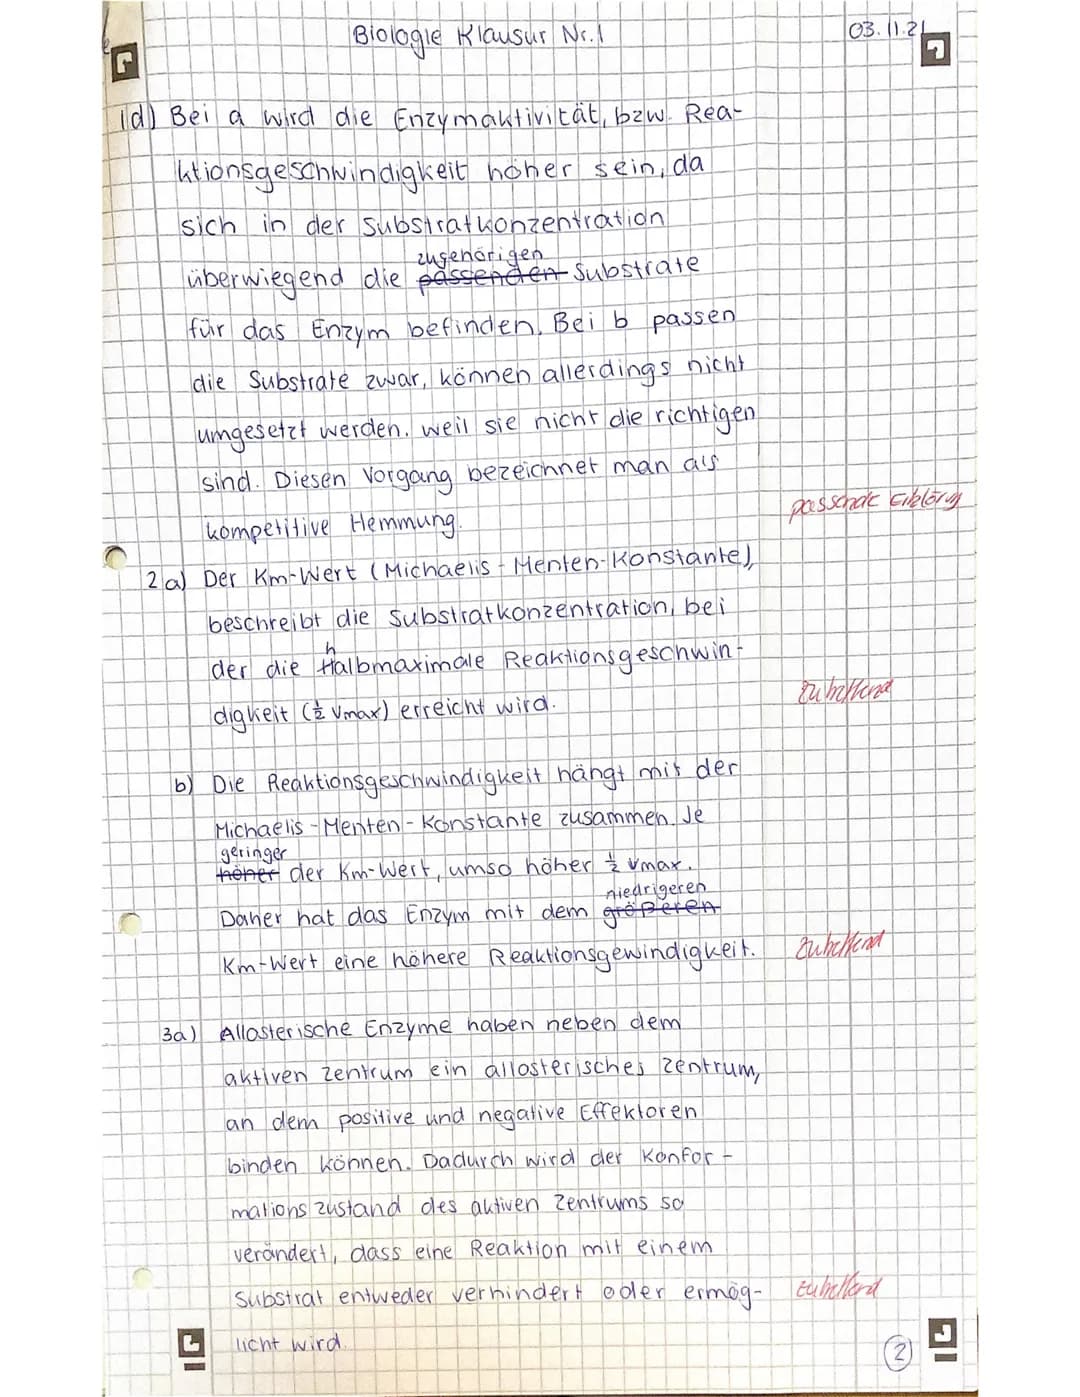 Biologie Klausur Nr. 1
03.11.21
1d) Bei a wird die Enzymaktivität, bzw. Rea-
ktionsgeschwindigkeit höher sein, da
sich in der Substratkonzentration
zugehörigen
überwiegend die passenden Substrate
für das Enzym befinden. Bei b passen
die Substrate zwar, können allerdings nicht
umgesetzt werden, weil sie nicht die richtigen
sind. Diesen Vorgang bezeichnet man als
kompetitive Hemmung.
passende Erklärung
2a) Der Km-Wert (Michaelis-Menten-Konstante),
beschreibt die Substratkonzentration, bei
h
der die Halbmaximale Reaktionsgeschwin-
digkeit (½ Vmax) erreicht wird.
zutreffend
b) Die Reaktionsgeschwindigkeit hängt mit der
Michaelis-Menten-Konstante zusammen. Je
geringer
höher der Km-Wert, umso höher ½ vmax.
niedrigeren
Daher hat das Enzym mit dem größeren
Km-Wert eine höhere Reaktionsgewindigkeit.
zutreffend
3a) Allosterische Enzyme haben neben dem
aktiven Zentrum ein allosterisches Zentrum,
an dem positive und negative Effektoren
binden können. Dadurch wird der Konfor-
mationszustand des aktiven Zentrums so
verändert, dass eine Reaktion mit einem
Substrat entweder verhindert oder ermög-
zutreffend
licht wird.
2